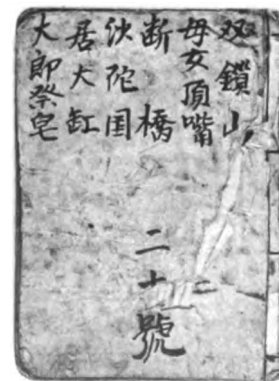 双鎖山
母女頂嘴
断橋
伏陀国
居大缸
大郎祭皂
二十號